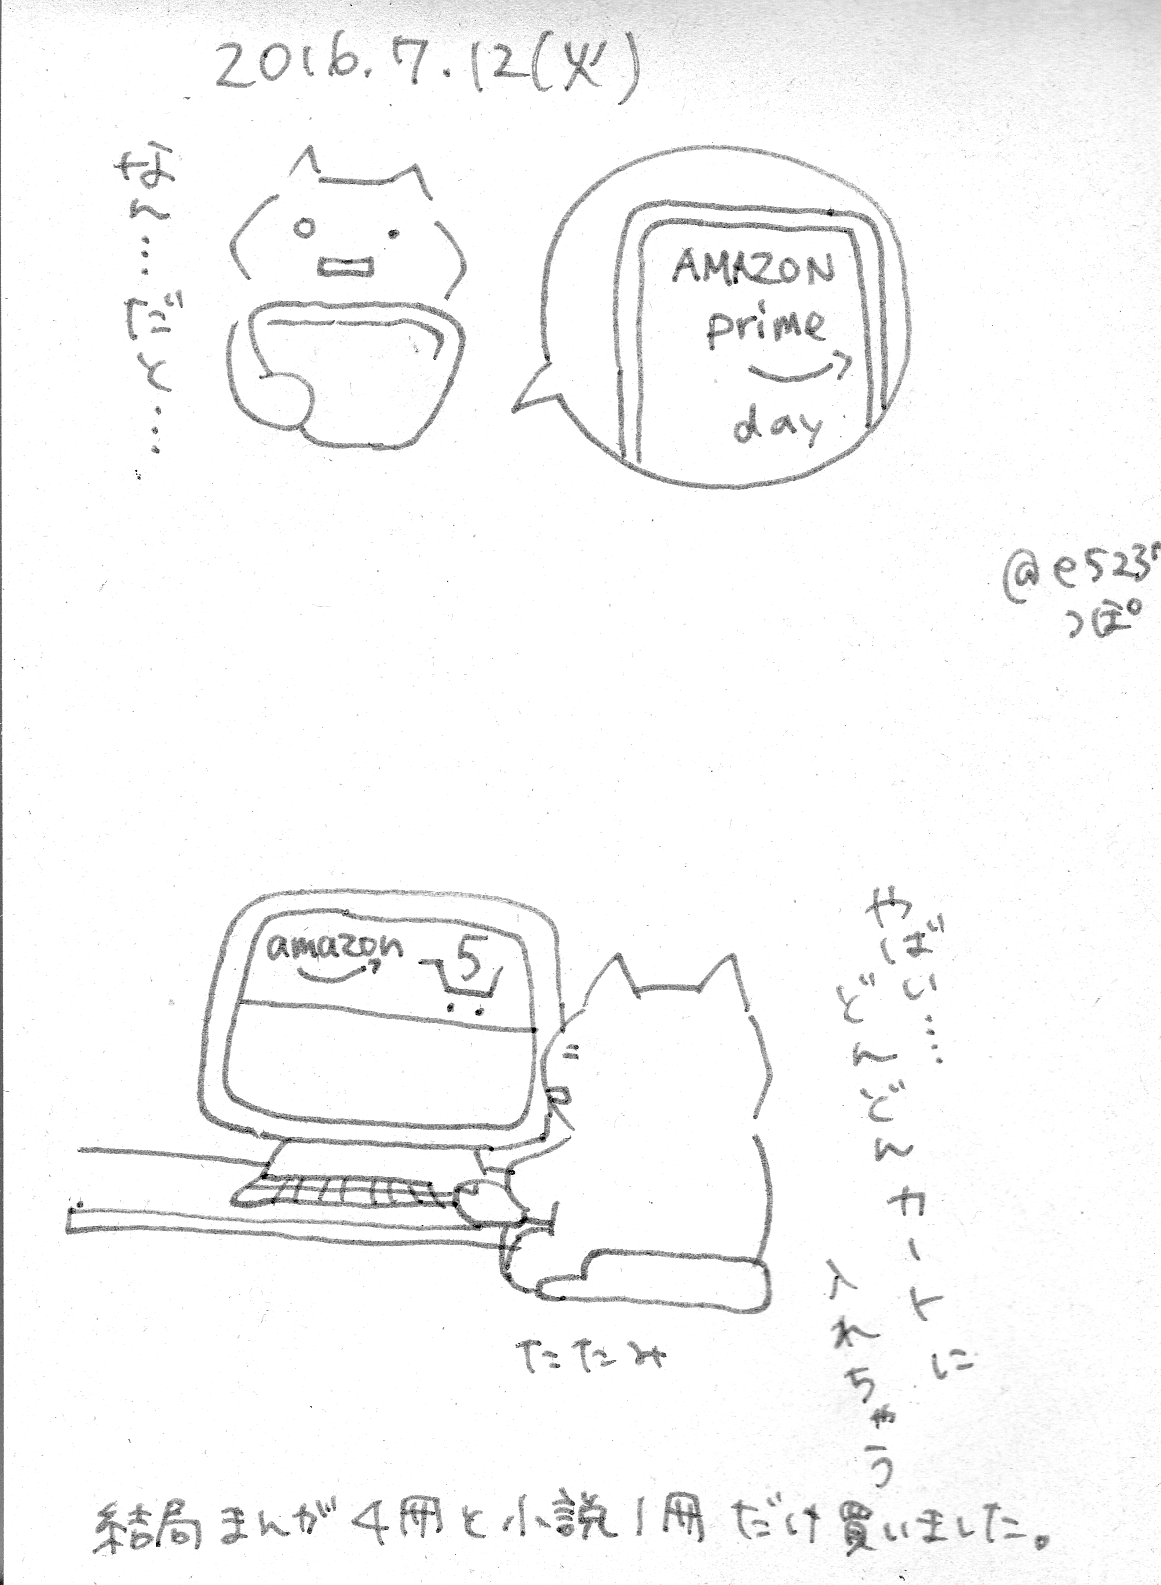 2016.7.12(火)
なん…だと…
AMAZON
prime
day
@e523
っぽ
amazon
5
やばい…
どんどんカートに
入れちゃう
たたみ
結局まんが4冊と小説1冊だけ買いました。